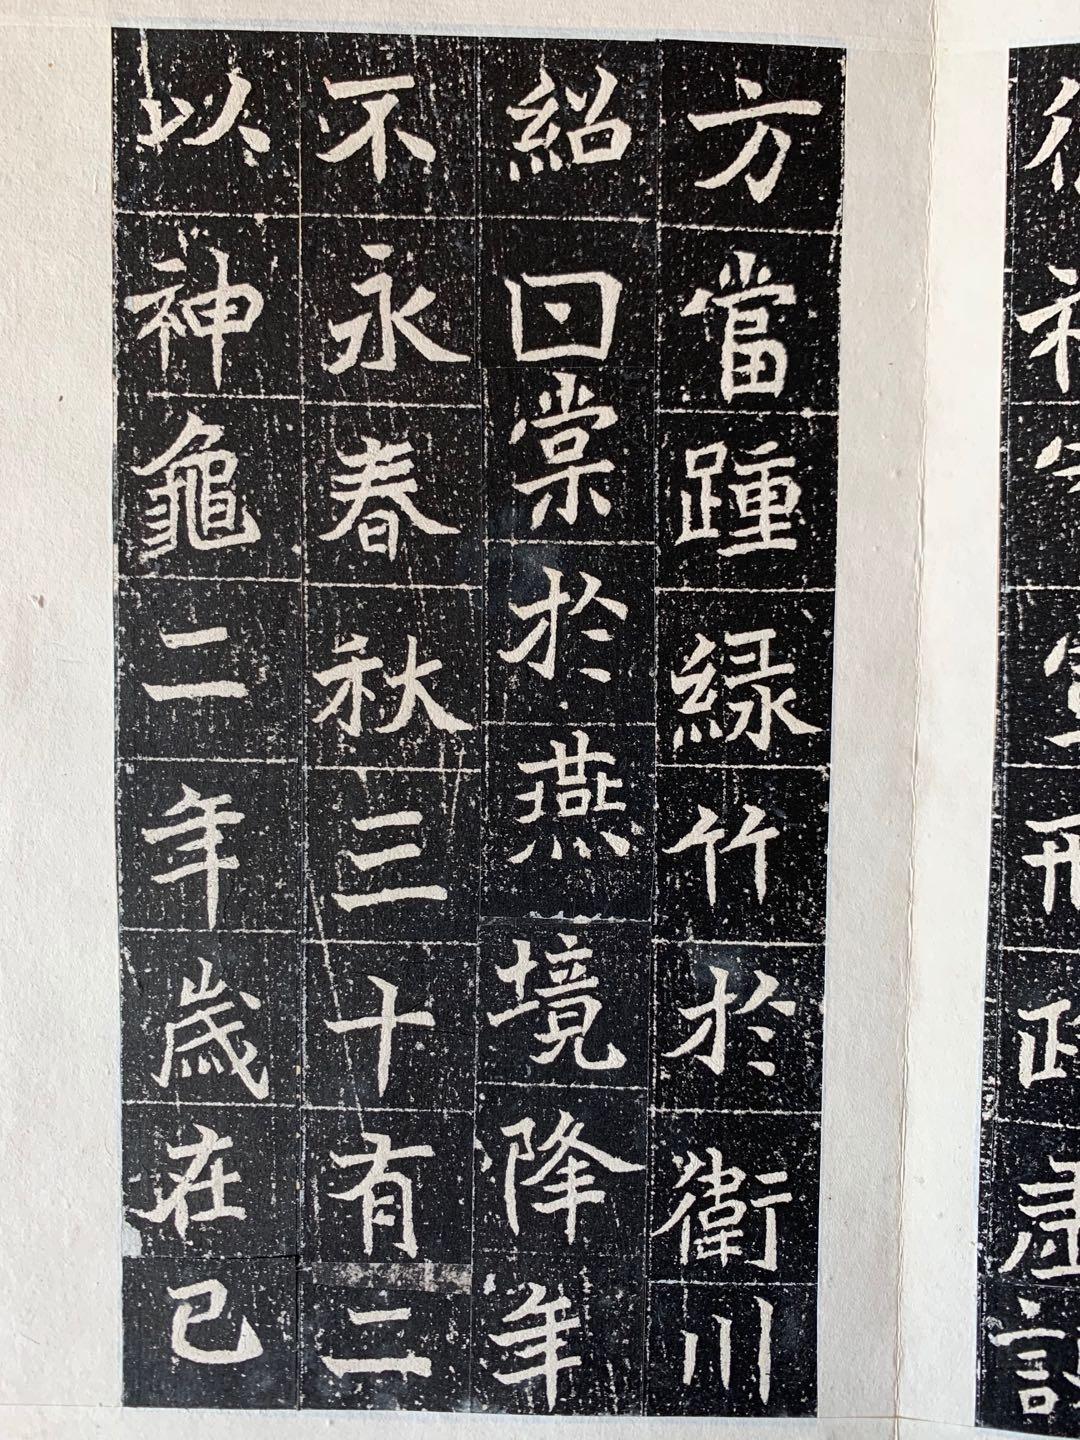 方當踵綠竹於衛川
紹曰棠於燕境降年
不永春秋三十有二
以神龜二年歲在已